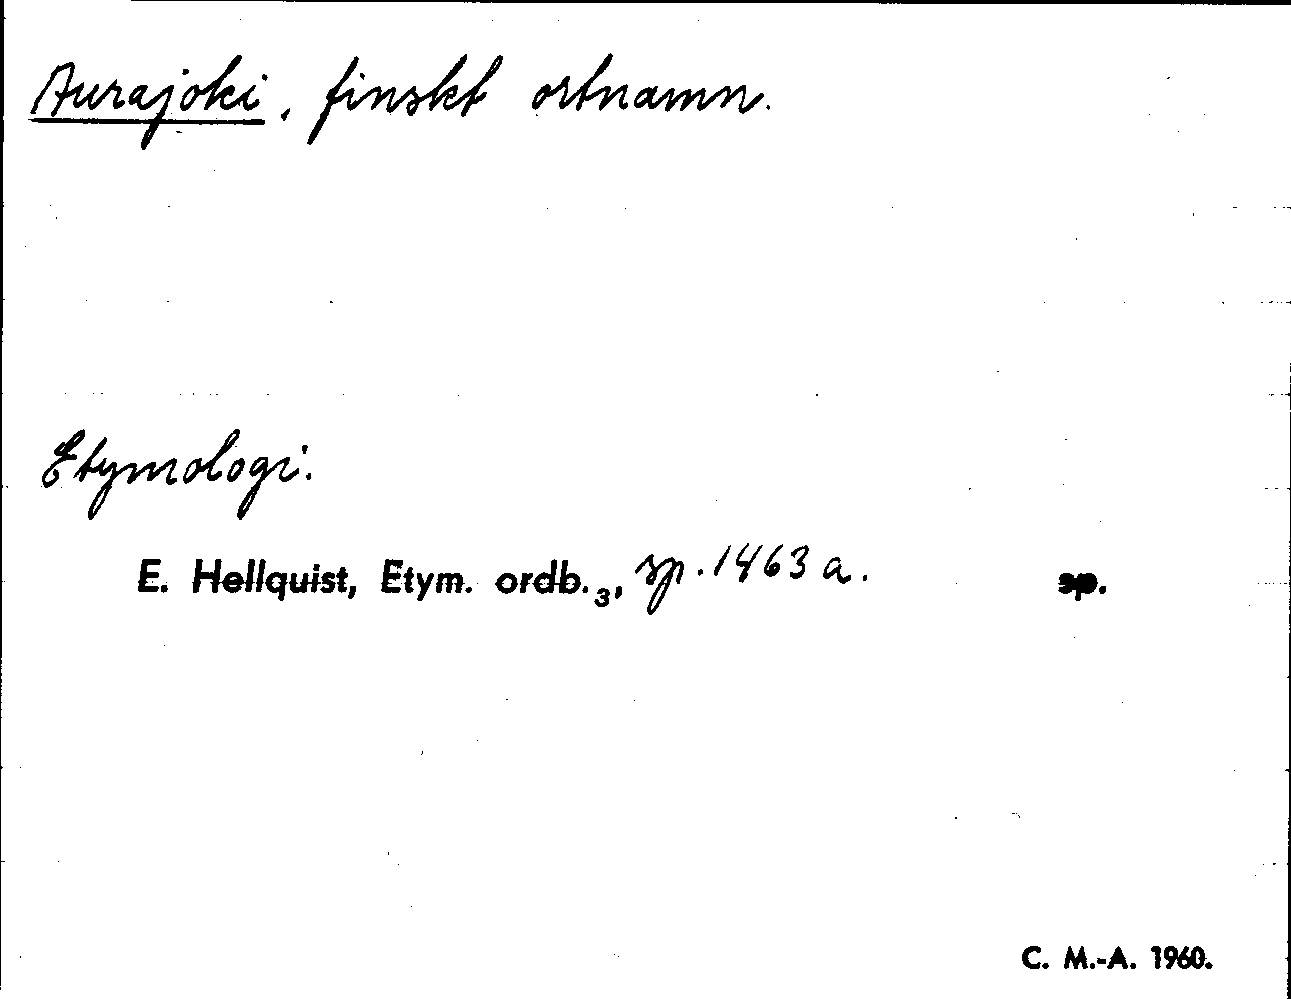 Aurajoki, finskt ortnamn.
Etymologi.
E. Hellquist, Etym. ordb.₃, sp. 1463 a. sp.
C. M.-A. 1960.